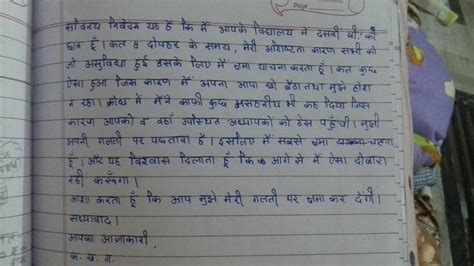 सविनय निवेदन यह है कि मैं आपके विद्यालय में दसवीं बी. की
छात्र हूँ। कल दोपहर के समय, मेरी अशिष्टता कारण सभी को
जो असुविधा हुई उसके लिए मैं क्षमा याचना करता हूँ। कल कुछ
ऐसा हुआ जिस कारण मैं अपना आपा खो बैठा तथा मुझे होश
न रहा। क्रोध में मैंने काफ़ी कुछ असहनीय भी कह दिया जिस
कारण आपको व वहाँ उपस्थित अध्यापकों को ठेस पहुँची। मुझे
अपनी गलती पर पछतावा है। इसलिए मैं सबसे क्षमा चाहता
हूँ। और यह विश्वास दिलाता हूँ कि आगे से मैं ऐसा दोबारा
नहीं करूँगा।
आशा करता हूँ कि आप मुझे मेरी गलती पर क्षमा कर देंगी।
सधन्यवाद।
आपका आज्ञाकारी,
क. ख. ग.